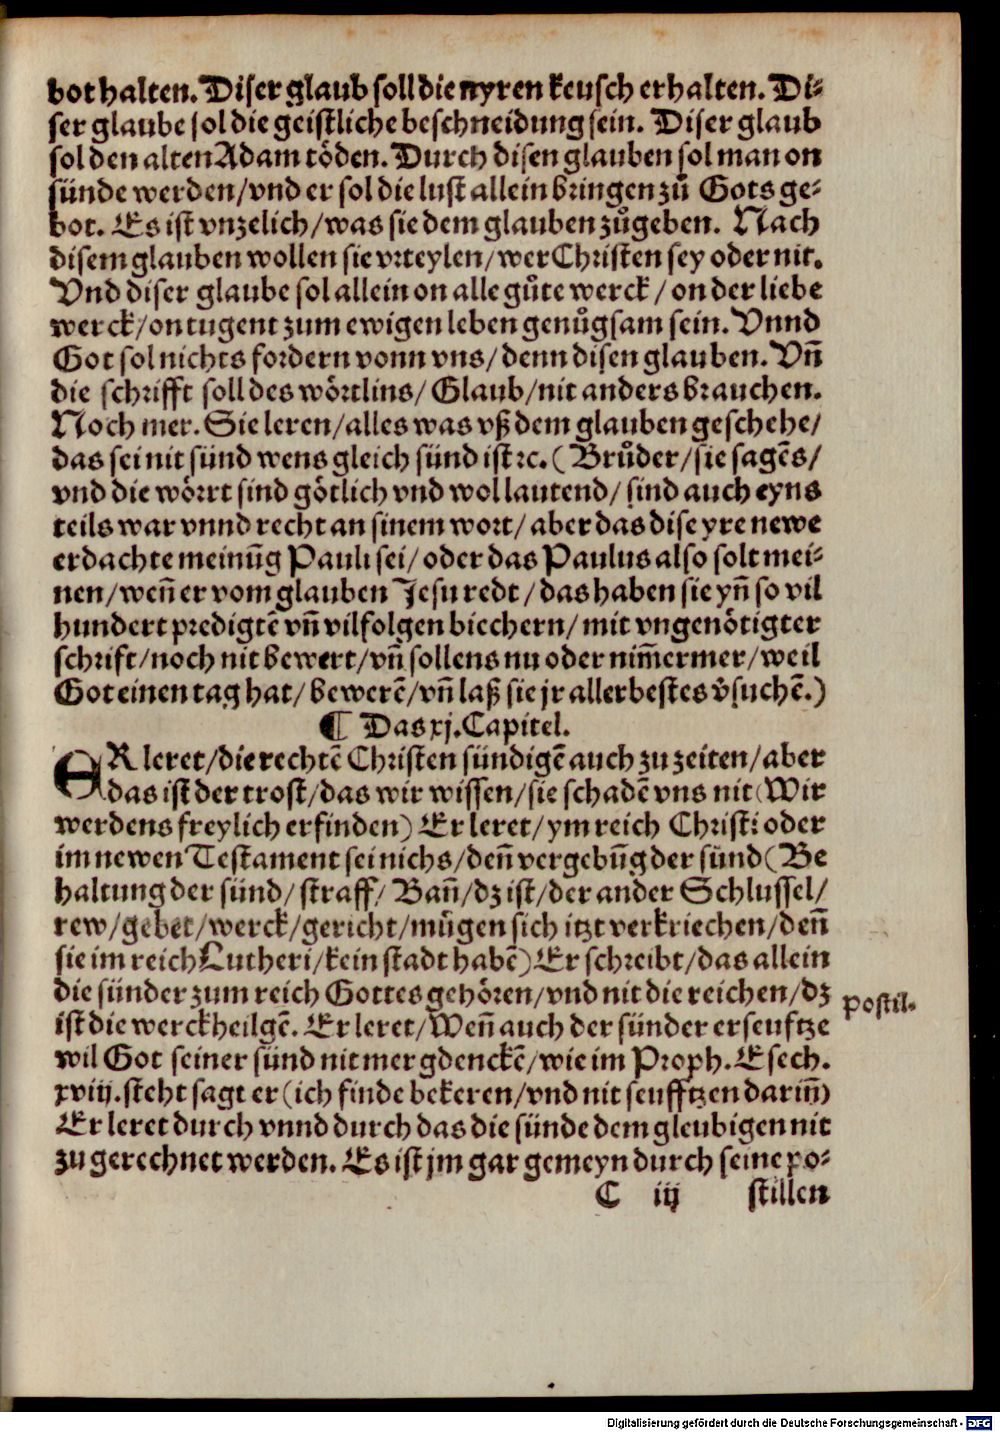 bot halten. Diser glaub soll die nyren keusch erhalten. Di⸗
ser glaube sol die geistliche beschneidung sein. Diser glaub
sol den alten Adam töden. Durch disen glauben sol man on
sünde werden/ vnd er sol die lust allein bringen zů Gots ge⸗
bot. Es ist vnzelich/ was sie dem glauben zůgeben. Nach
disem glauben wollen sie vrteylen/ wer Christen sey oder nit.
Vnd diser glaube sol allein on alle gůte werck/ on der liebe
werck/ on tugent zum ewigen leben genůgsam sein. Vnnd
Got sol nichts fordern vonn vns/ denn disen glauben. Vn̄
die schrifft soll des wörtlins/ Glaub/ nit anders brauchen.
Noch mer. Sie leren/ alles was vß dem glauben geschehe/
das sei nit sünd wens gleich sünd ist ꝛc. (Brůder/ sie sagēs/
vnd die wörrt sind götlich vnd wol lautend/ sind auch eyns
teils war vnnd recht an sinem wort/ aber das dise yre newe
erdachte meinūg Pauli sei/ oder das Paulus also solt mei⸗
nen/ wen̄ er vom glauben Jesu redt/ das haben sie yn̄ so vil
hundert predigtē vn̄ vilfolgen biechern/ mit vngenötigter
schrift/ noch nit bewert/ vn̄ sollens nu oder nim̄ermer/ weil
Got einen tag hat/ bewerē/ vn̄ laß sie jr allerbestes v̄suchē.)
¶ Das xj. Capitel.
ER leret/ die rechtē Christen sündigē auch zu zeiten/ aber
das ist der trost/ das wir wissen/ sie schadē vns nit (Wir
werdens freylich erfinden) Er leret/ ym reich Christi oder
im newen Testament sei nichs/ den̄ vergebūg der sünd (Be
haltung der sünd/ straff/ Ban̄/ dz ist/ der ander Schlussel/
rew/ gebet/ werck/ gericht/ mügen sich itzt verkriechen/ den̄
sie im reich Lutheri/ kein stadt habē) Er schreibt/ das allein
die sünder zum reich Gottes gehören/ vnd nit die reichen/ dz
ist die werckheilgē. Er leret/ Wen̄ auch der sünder erseuftze
wil Got seiner sünd nit mer gdenckē/ wie im Proph. Esech.
xviij. steht sagt er (ich finde bekeren/ vnd nit seufftzen darin̄)
Er leret durch vnnd durch das die sünde dem gleubigen nit
zu gerechnet werden. Es ist jm gar gemeyn durch seine po⸗
postil.
C iij stillen
Digitalisierung gefördert durch die Deutsche Forschungsgemeinschaft - DFG